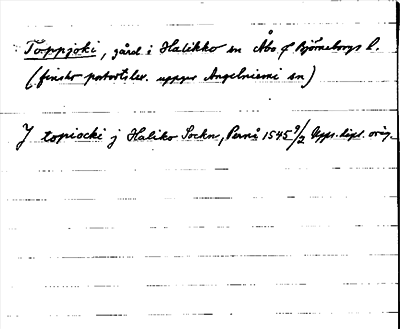 Toppjoki, gård i Halikko sn Åbo o Björneborgs l.
(finska postortslex. uppger Angelniemi sn)
J topiocki j Haliko Sockn, Pernå 1545 9/2 Upps. dipl. orig.